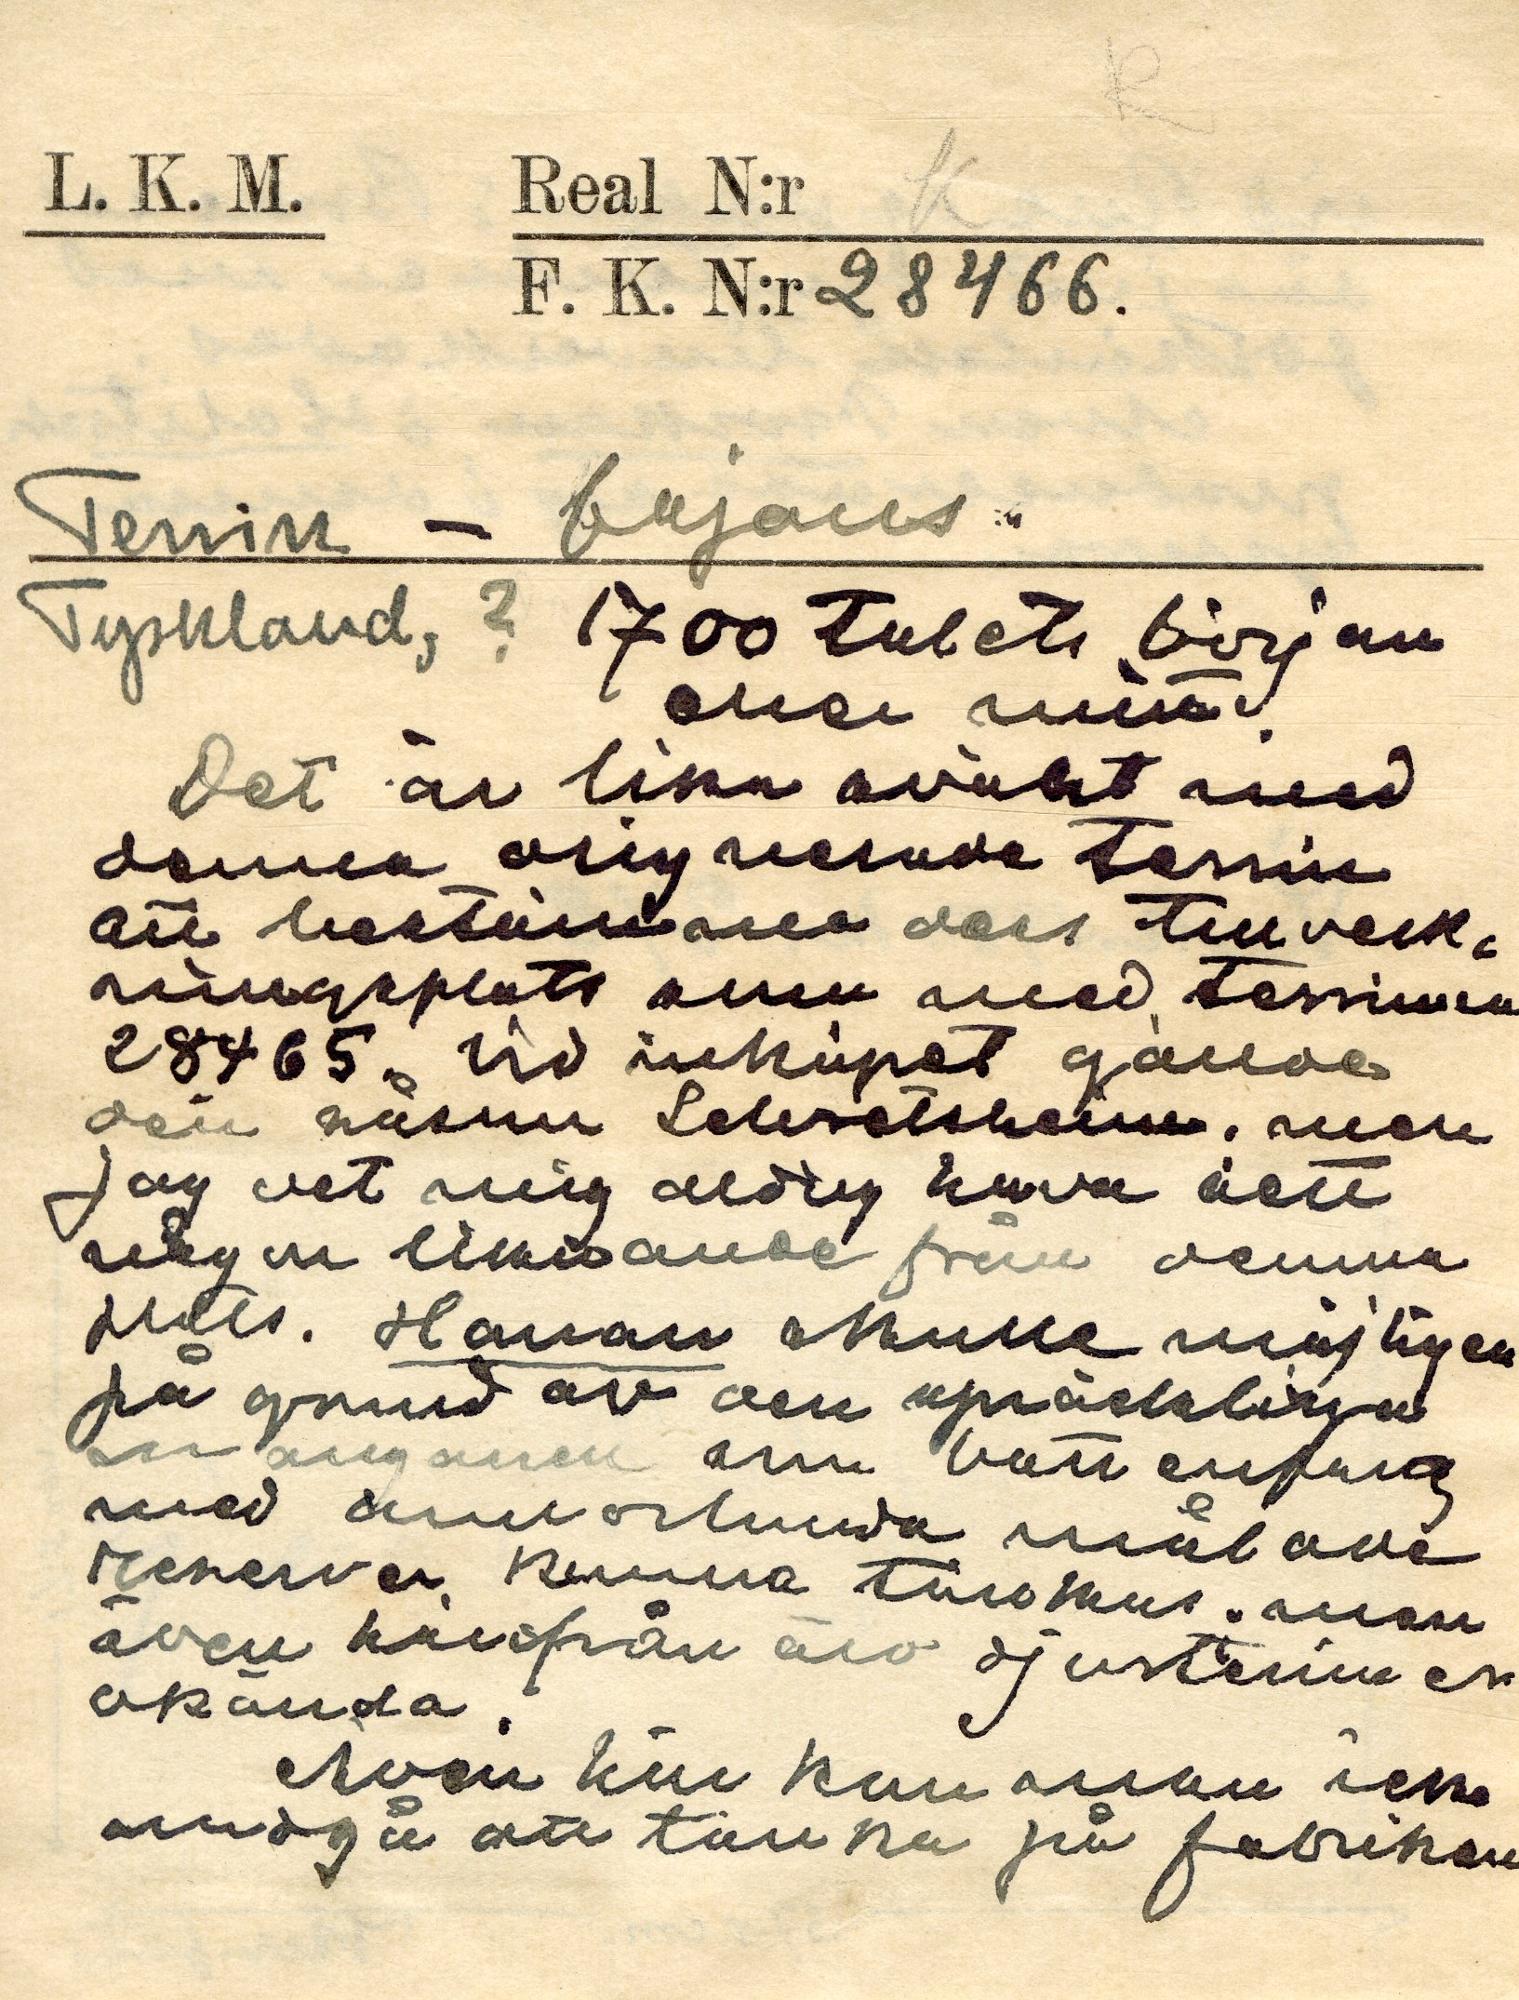 R
L. K. M. Real N:r K
F. K. N:r 28466.
Terrin – fajans.
Tyskland, ? 1700 talets början
eller mitt.
Det är lika svårt med
denna originerade terrin
att bestämma dess tillverk-
ningsplats som med terrinen
28465. Vid inköpet gällde
den såsom Schretsheim, men
jag vet mig aldrig hava sett
någon liknande från denna
plats. Hanau skulle möjligen
på grund av den spräckliga
manganen som bottenfärg
med annorlunda målade
reserver kunna tänkas, men
även härifrån äro djurterriner
okända.
Även här kan man icke
undgå att tänka på fabriken